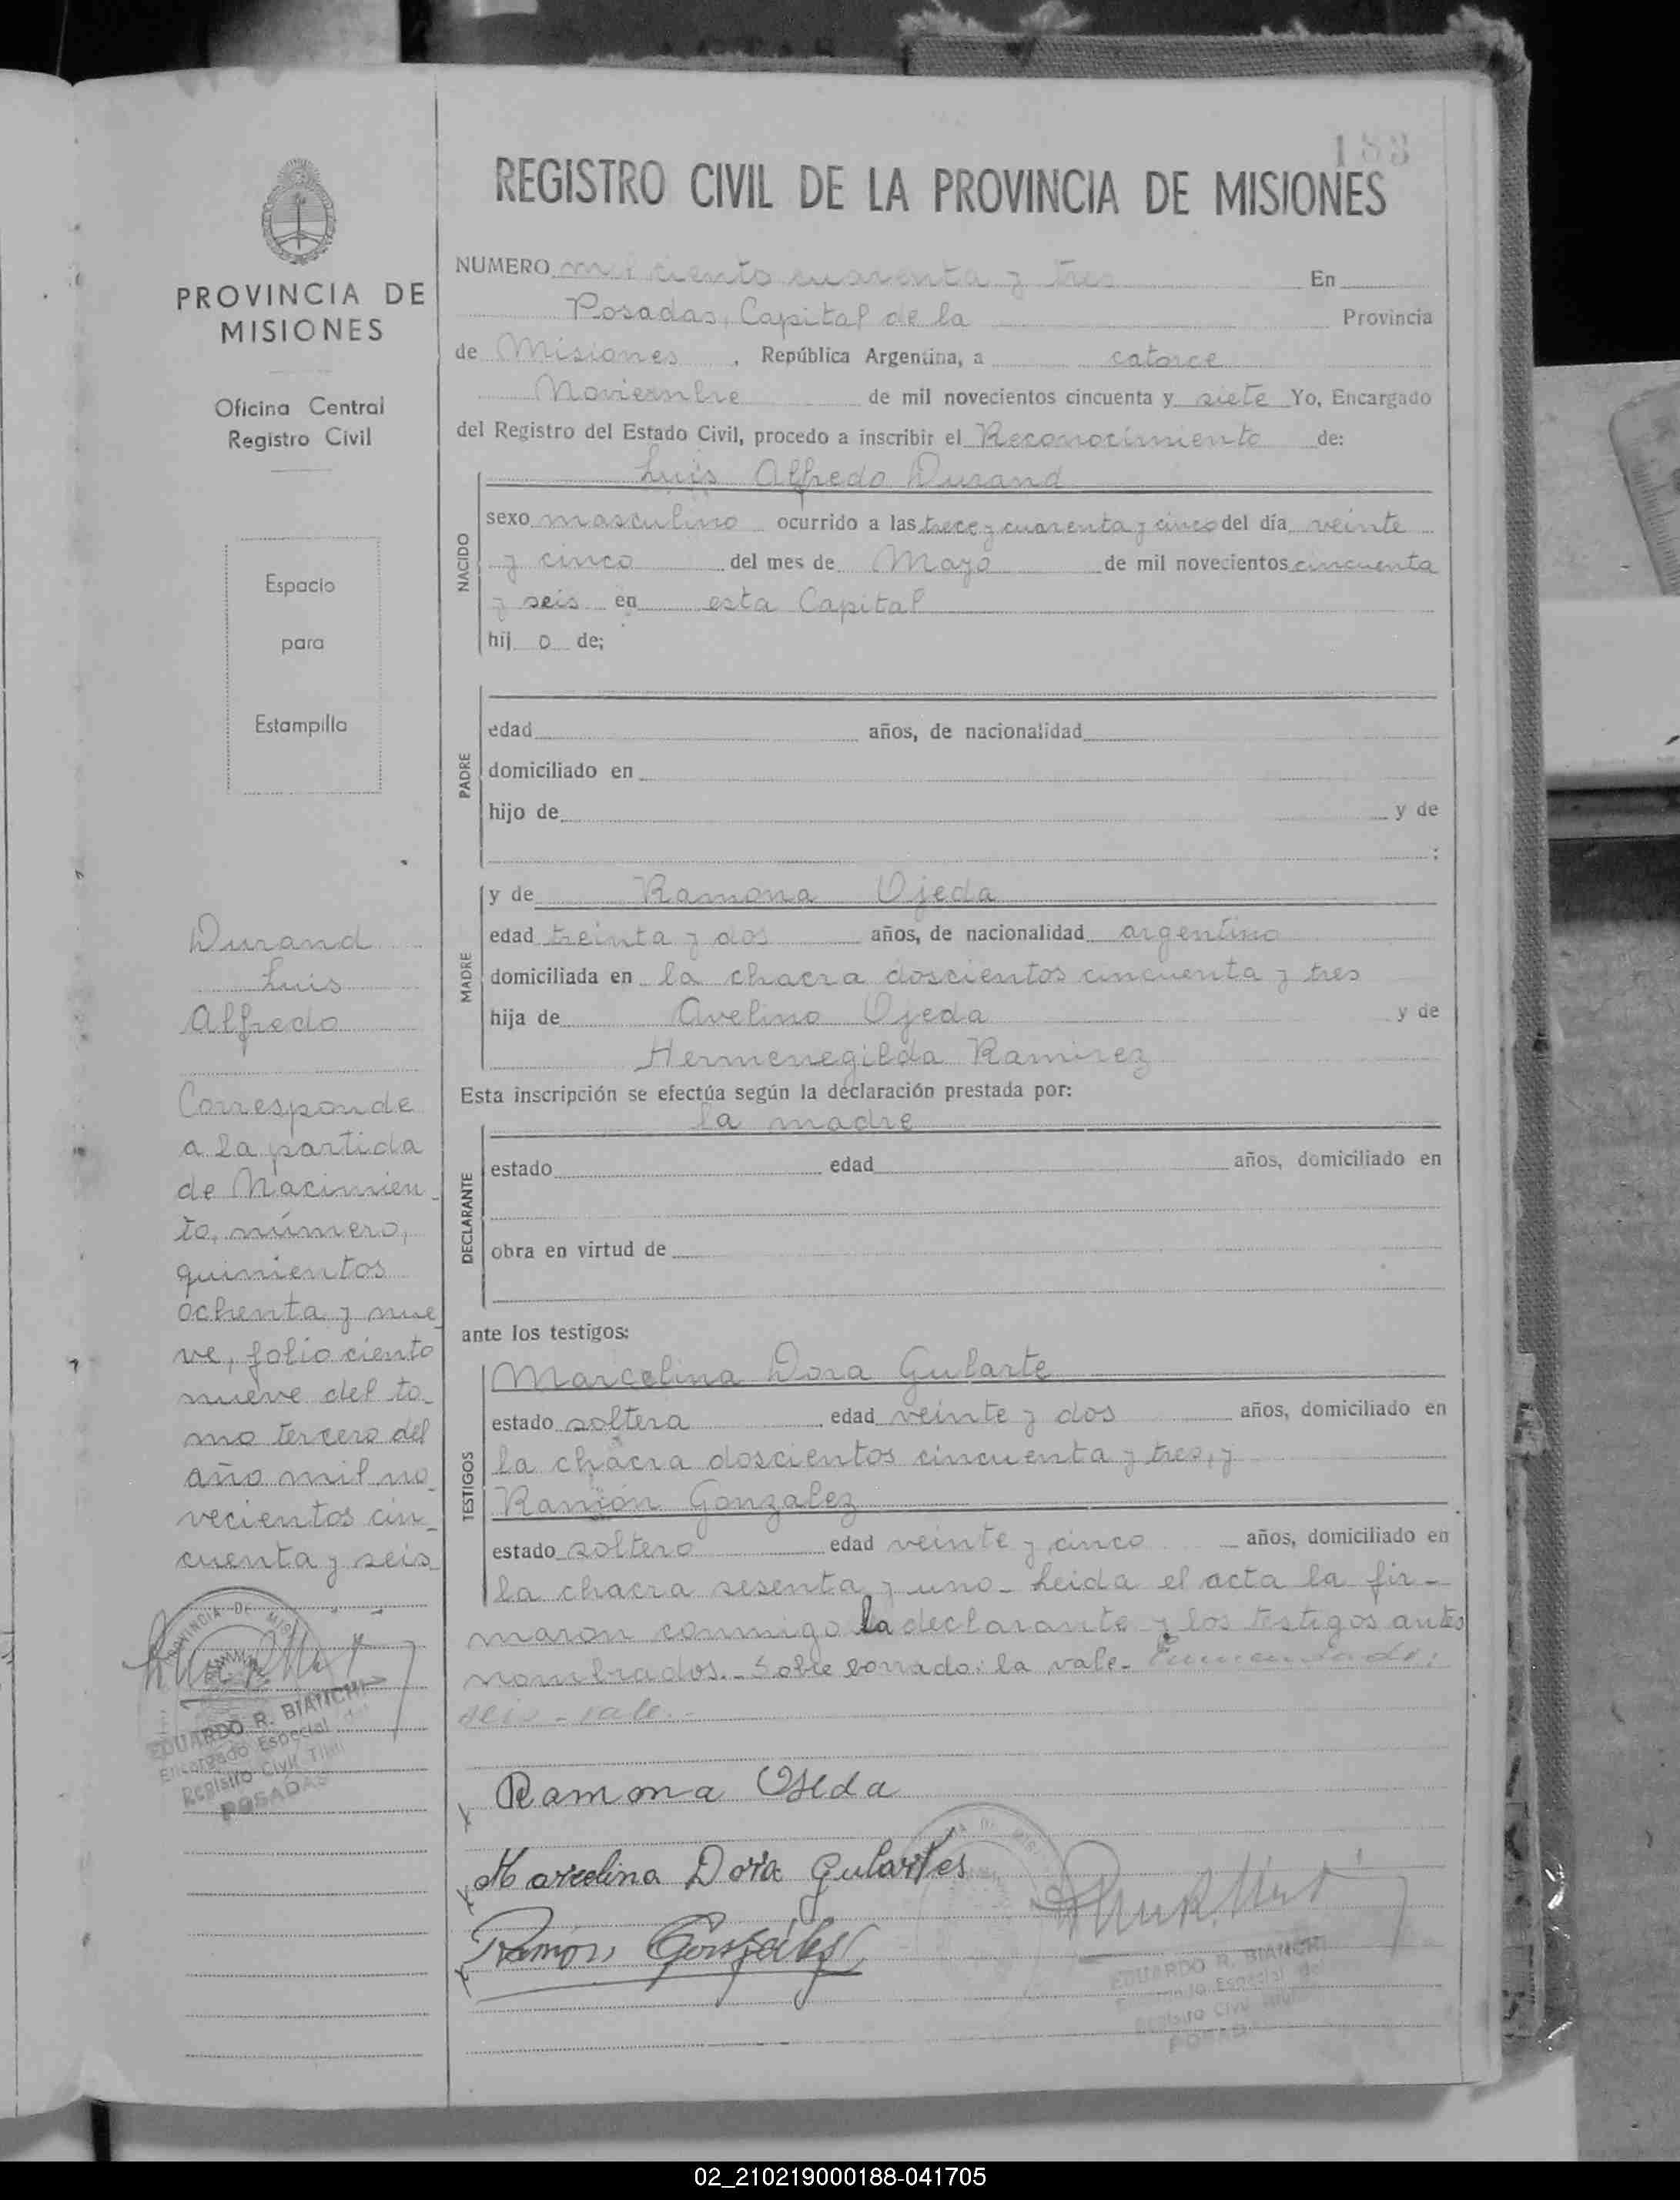 183
REGISTRO CIVIL DE LA PROVINCIA DE MISIONES
NUMERO mil ciento cuarenta y tres En
Posadas, Capital de la Provincia
de Misiones, República Argentina, a catorce
Noviembre de mil novecientos cincuenta y siete Yo, Encargado
del Registro del Estado Civil, procedo a inscribir el Reconocimiento de:
NACIDO
Luis Alfredo Durand
sexo masculino ocurrido a las trece y cuarenta y cinco del día veinte
y cinco del mes de Mayo de mil novecientos cincuenta
y seis en esta Capital
hij o de;
PADRE
edad años, de nacionalidad
domiciliado en
hijo de y de
:
MADRE
y de Ramona Ojeda
edad treinta y dos años, de nacionalidad argentina
domiciliada en la chacra doscientos cincuenta y tres
hija de Avelino Ojeda y de
Hermenegilda Ramirez
Esta inscripción se efectúa según la declaración prestada por:
la madre
DECLARANTE
estado edad años, domiciliado en
obra en virtud de
ante los testigos:
TESTIGOS
Marcelina Dora Gularte
estado soltera edad veinte y dos años, domiciliado en
la chacra doscientos cincuenta y tres, y
Ramón Gonzalez
estado soltero edad veinte y cinco años, domiciliado en
la chacra sesenta y uno - Leida el acta la fir-
maron conmigo la declarante y los testigos antes
nombrados. - Sobre borrado: la vale - Enmendado:
seis - vale. -
Ramona Ojeda
Marcelina Dora Gulartes
Ramón González
EDUARDO R. BIANCHI
Encargado Especial del
Registro Civil
POSADAS
PROVINCIA DE
MISIONES
Oficina Central
Registro Civil
Espacio
para
Estampilla
Durand
Luis
Alfredo
Corresponde
a la partida
de Nacimien-
to, número,
quinientos
ochenta y nue
ve, folio ciento
nueve del to-
mo tercero del
año mil no-
vecientos cin-
cuenta y seis
PROVINCIA DE MIS
EDUARDO R. BIANCHI
Encargado Especial del
Registro Civil
POSADAS
02_210219000188-041705